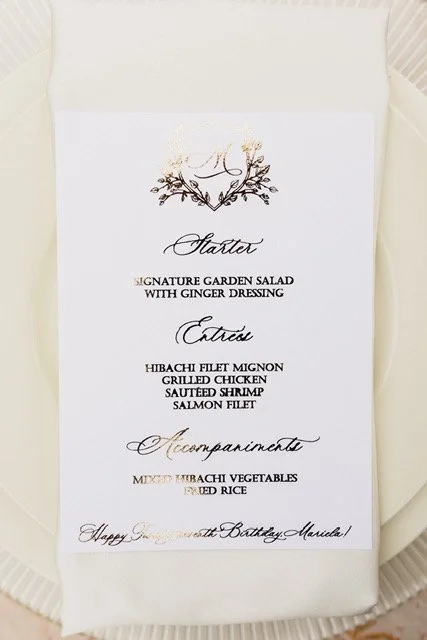 M
Starter
SIGNATURE GARDEN SALAD
WITH GINGER DRESSING
Entrées
HIBACHI FILET MIGNON
GRILLED CHICKEN
SAUTÉED SHRIMP
SALMON FILET
Accompaniments
MIXED HIBACHI VEGETABLES
FRIED RICE
Happy Birthday Mariela!